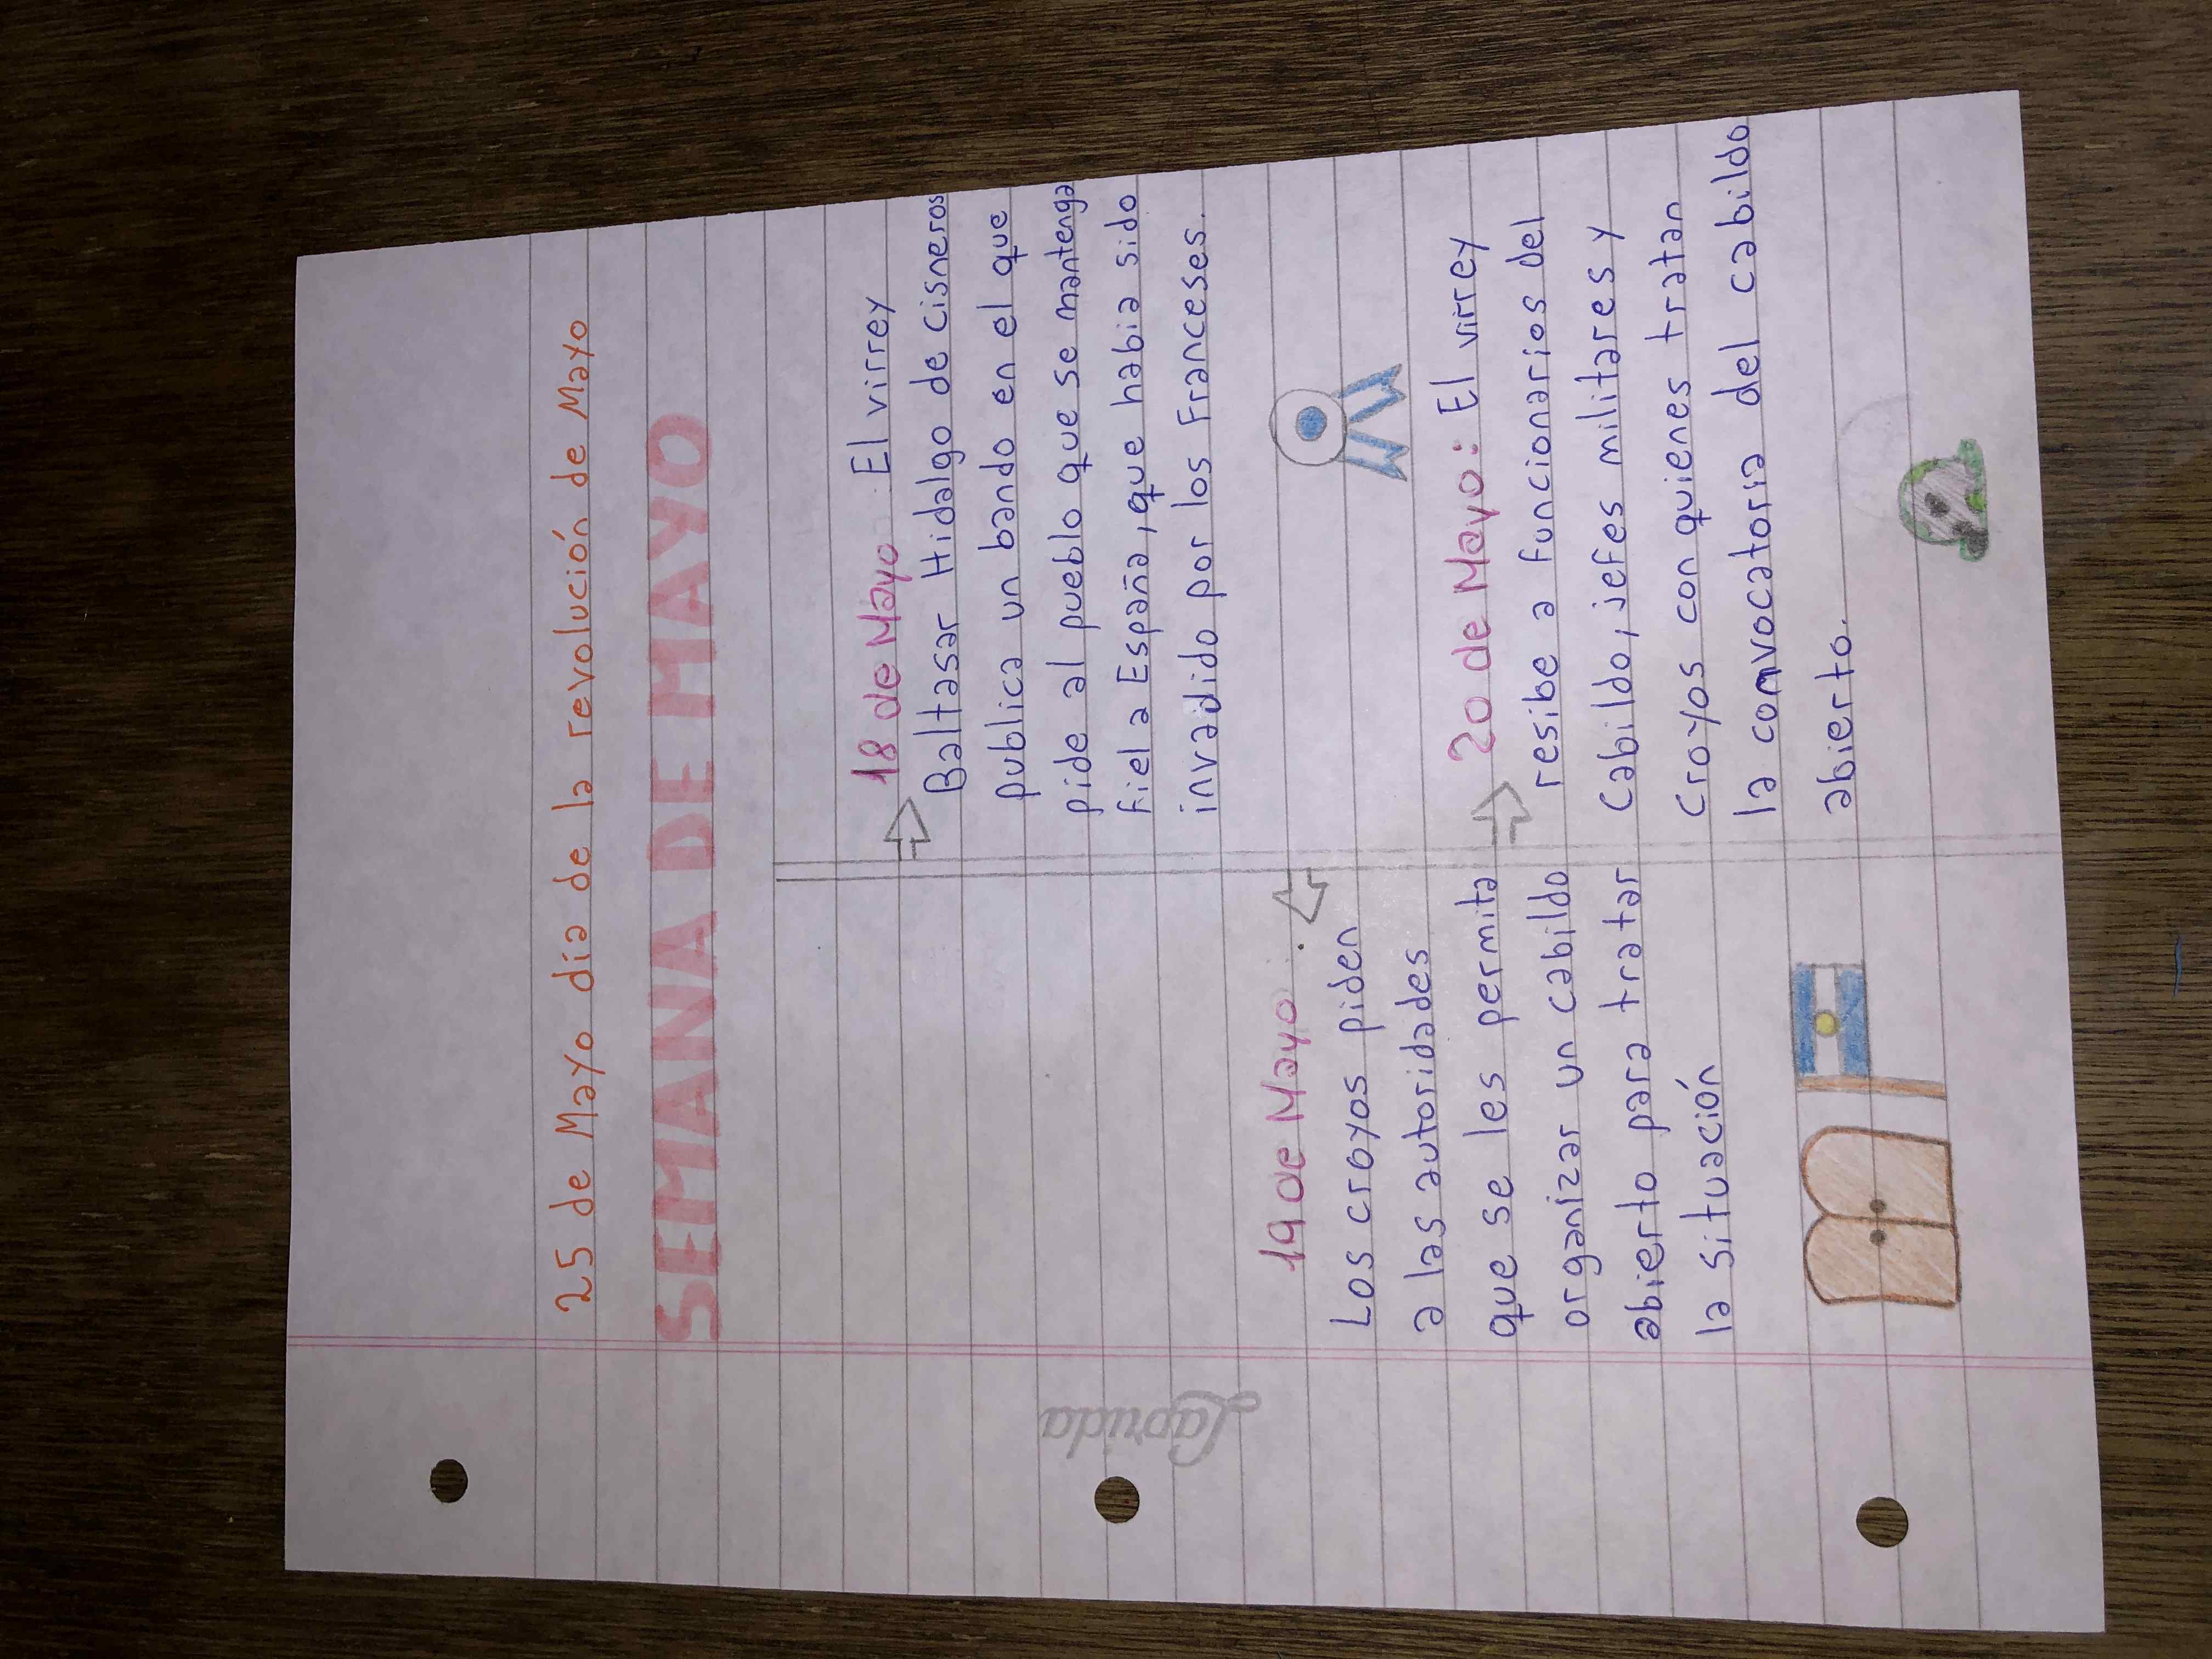 25 de Mayo día de la revolución de Mayo
SEMANA DE MAYO
18 de Mayo : El virrey
Baltasar Hidalgo de Cisneros
publica un bando en el que
pide al pueblo que se mantenga
fiel a España, que habia sido
invadido por los Franceses.
19 de Mayo :
Los croyos piden
a las autoridades
que se les permita
organizar un cabildo
abierto para tratar
la situación
20 de Mayo: El virrey
resibe a funcionarios del
Cabildo, jefes militares y
croyos con quienes tratan
la convocatoria del cabildo
abierto.
Laprida